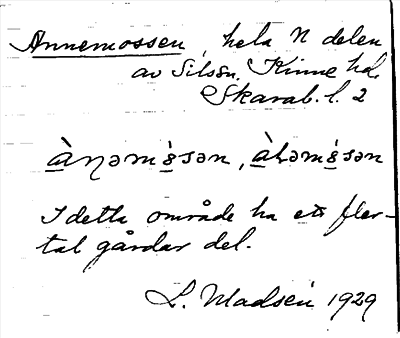 Annemossen, hela N delen
av Silsn. Kinne hd.
Skarab. l. 2
ànəmèsən, àləmèsən
I detta område ha ett fler-
tal gårdar del.
L. Madsén 1929